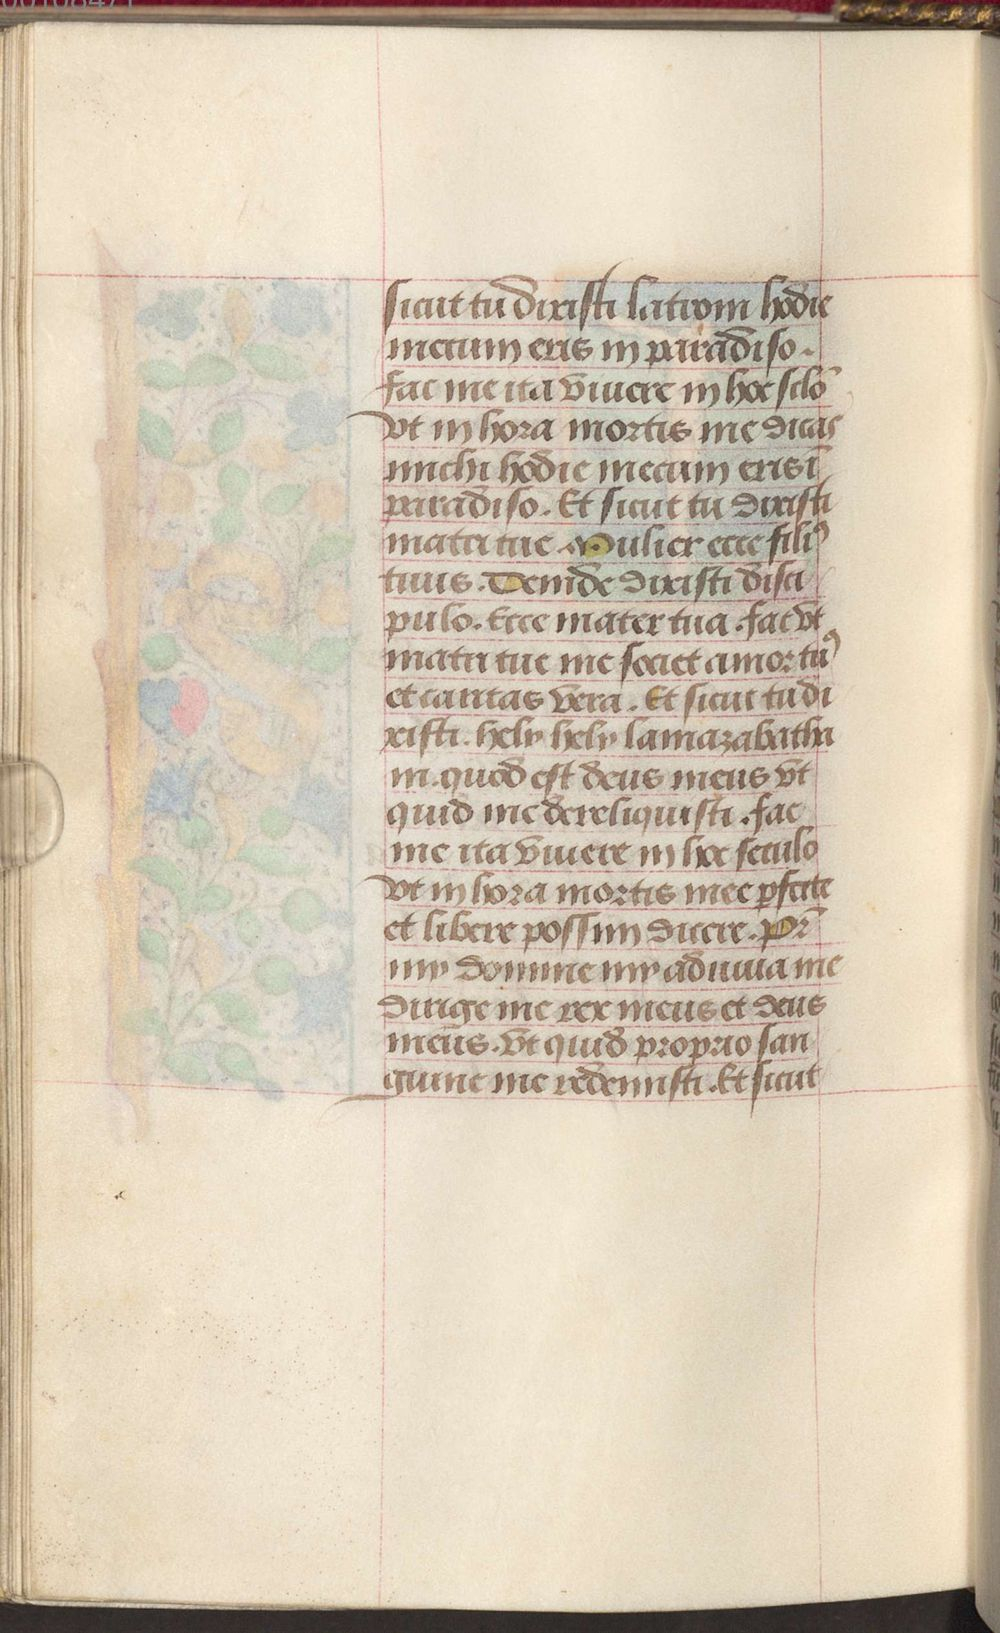 sicut tu dixisti latroni hodie
mecum eris in paradiso.
fac me ita vivere in hoc sclo͂
vt in hora mortis me dicas
michi hodie mecum eris ĩ
paradiso. Et sicut tu dixisti
matri tue. Mulier ecce filiꝰ
tuus. Deinde dixisti disci
pulo. Ecce mater tua. fac vt
matri tue me societ amor tuꝰ
et caritas vera. Et sicut tu di
xisti. hely hely lamazabatha
ni. quod est deus meus vt
quid me dereliquisti. fac
me ita vivere in hoc seculo
vt in hora mortis mee ꝑfecte
et libere possim dicere. Pr̃
mi domine mi adiuua me
dirige me rex meus et deus
meus. vt quid proprio san
guine me redemisti. Et sicut